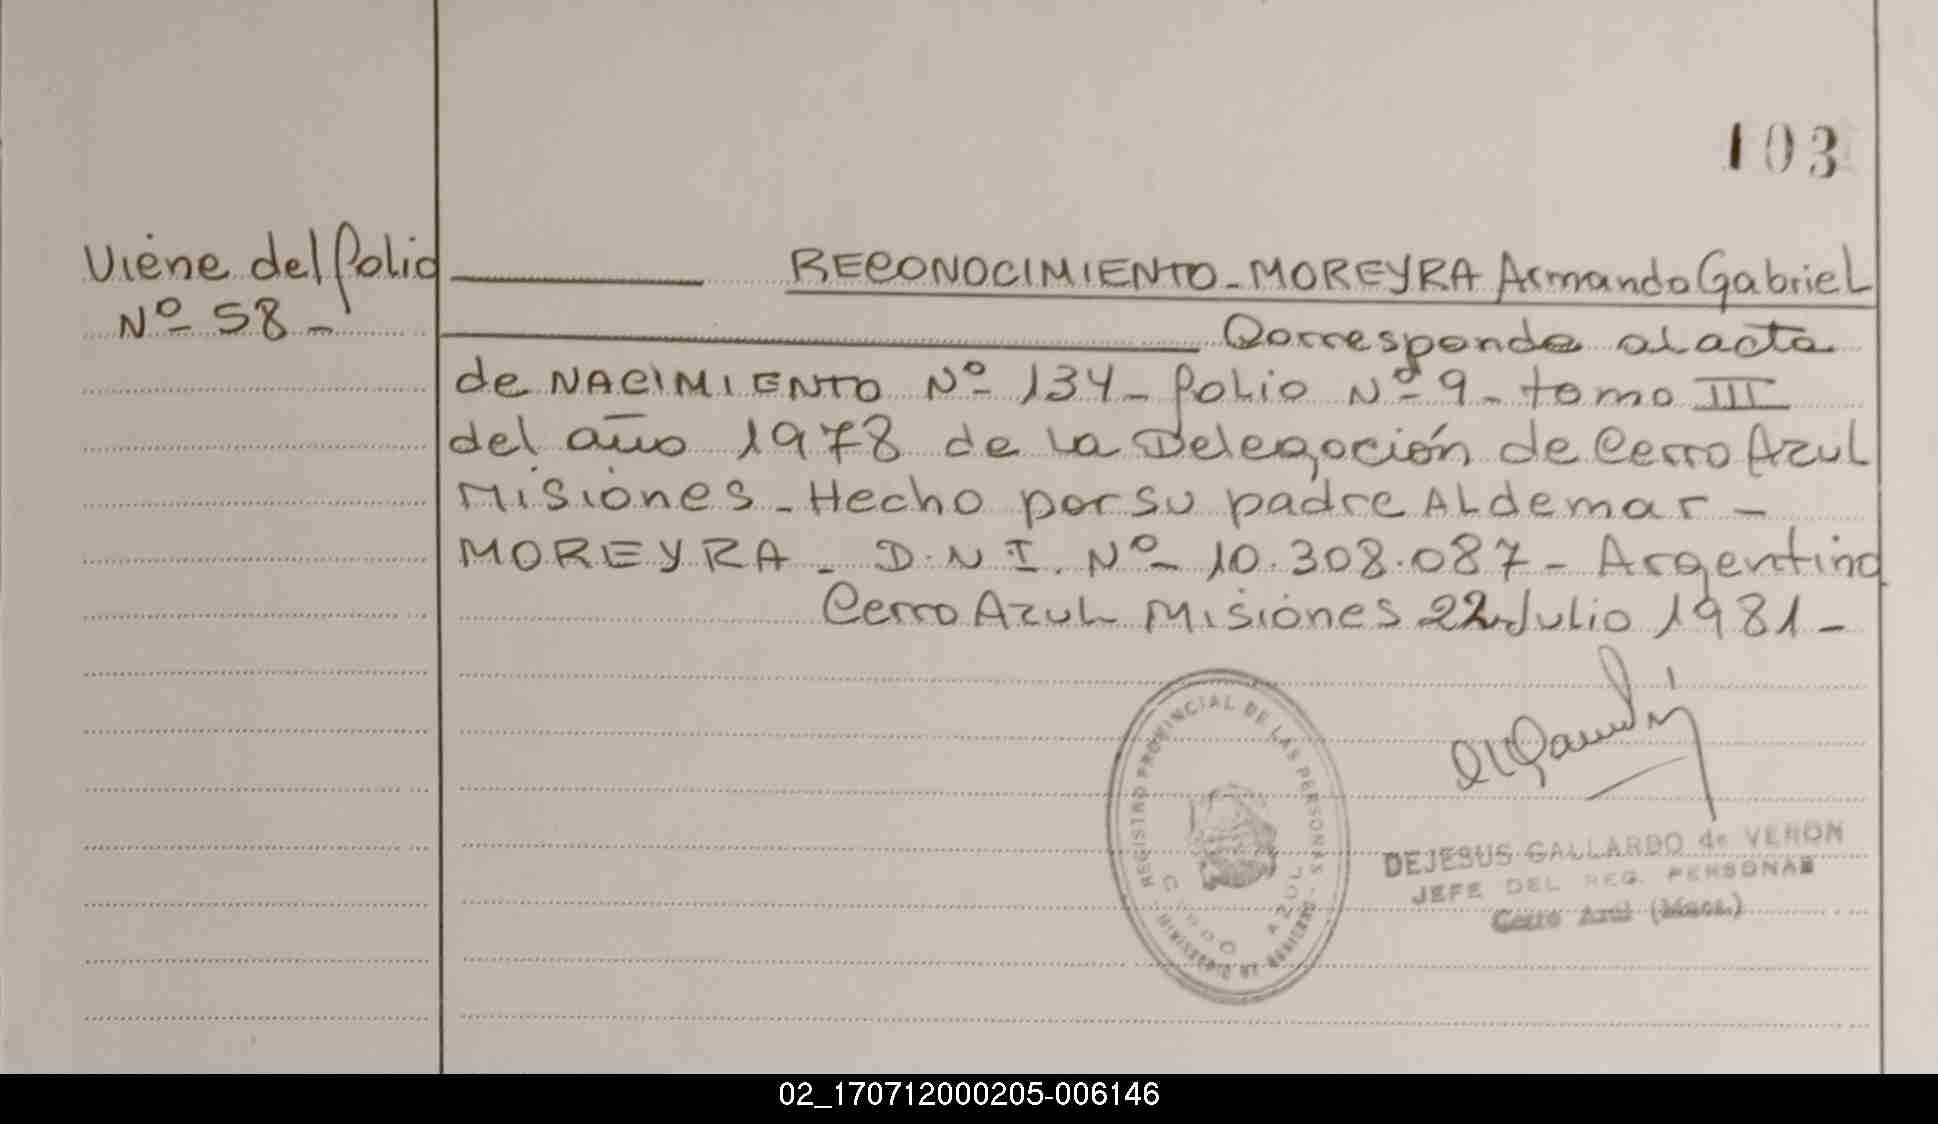 103
Viene del folio
Nº 58-
RECONOCIMIENTO - MOREYRA Armando Gabriel
Corresponde al acta
de NACIMIENTO Nº 134 - folio Nº 9 - tomo III
del año 1978 de la Delegación de Cerro Azul
Misiones - Hecho por su padre Aldemar -
MOREYRA - D.N.I. Nº 10.308.087 - Argentino
Cerro Azul Misiones 22 Julio 1981 -
REGISTRO PROVINCIAL DE LAS PERSONAS
AZUL
DEJESUS GALLARDO de VERON
JEFE DEL REG. PERSONAS
Cerro Azul (Mnes.)
02_170712000205-006146